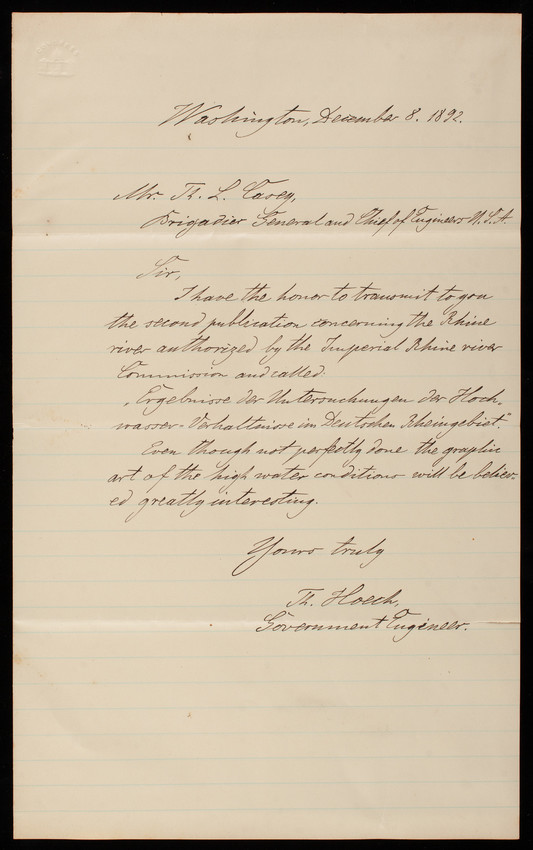 Washington, December 8. 1892.
Mr. Th. L. Casey,
Brigadier General and Chief of Engineers U.S.A.
Sir,
I have the honor to transmit to you
the second publication concerning the Rhine
river authorized by the Imperial Rhine river
Commission and called:
„Ergebnisse der Untersuchungen der Hoch-
wasser-Verhältnisse im Deutschen Rheingebiet."
Even though not perfectly done the graphic
art of the high water conditions will be believ-
ed greatly interesting.
Yours truly
Th. Hoech,
Government Engineer.